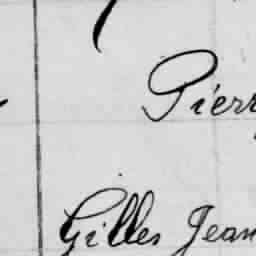 Pierr
Gilles Jean